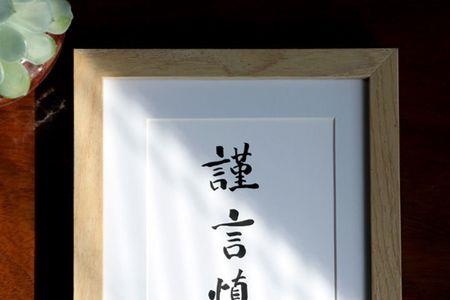 謹言慎